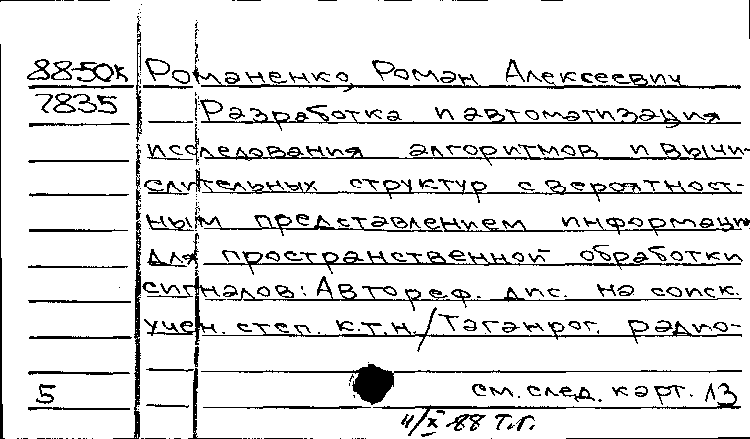 88-50к Романенко, Роман Алексеевич
7835 Разработка и автоматизация
исследования алгоритмов и вычи-
слительных структур с вероятност-
ным представлением информации
для пространственной обработки
сигналов: Автореф. дис. на соиск.
учен. степ. к.т.н. / Таганрог. радио-
5 см. след. карт. 13
4/X 88 Т.Г.